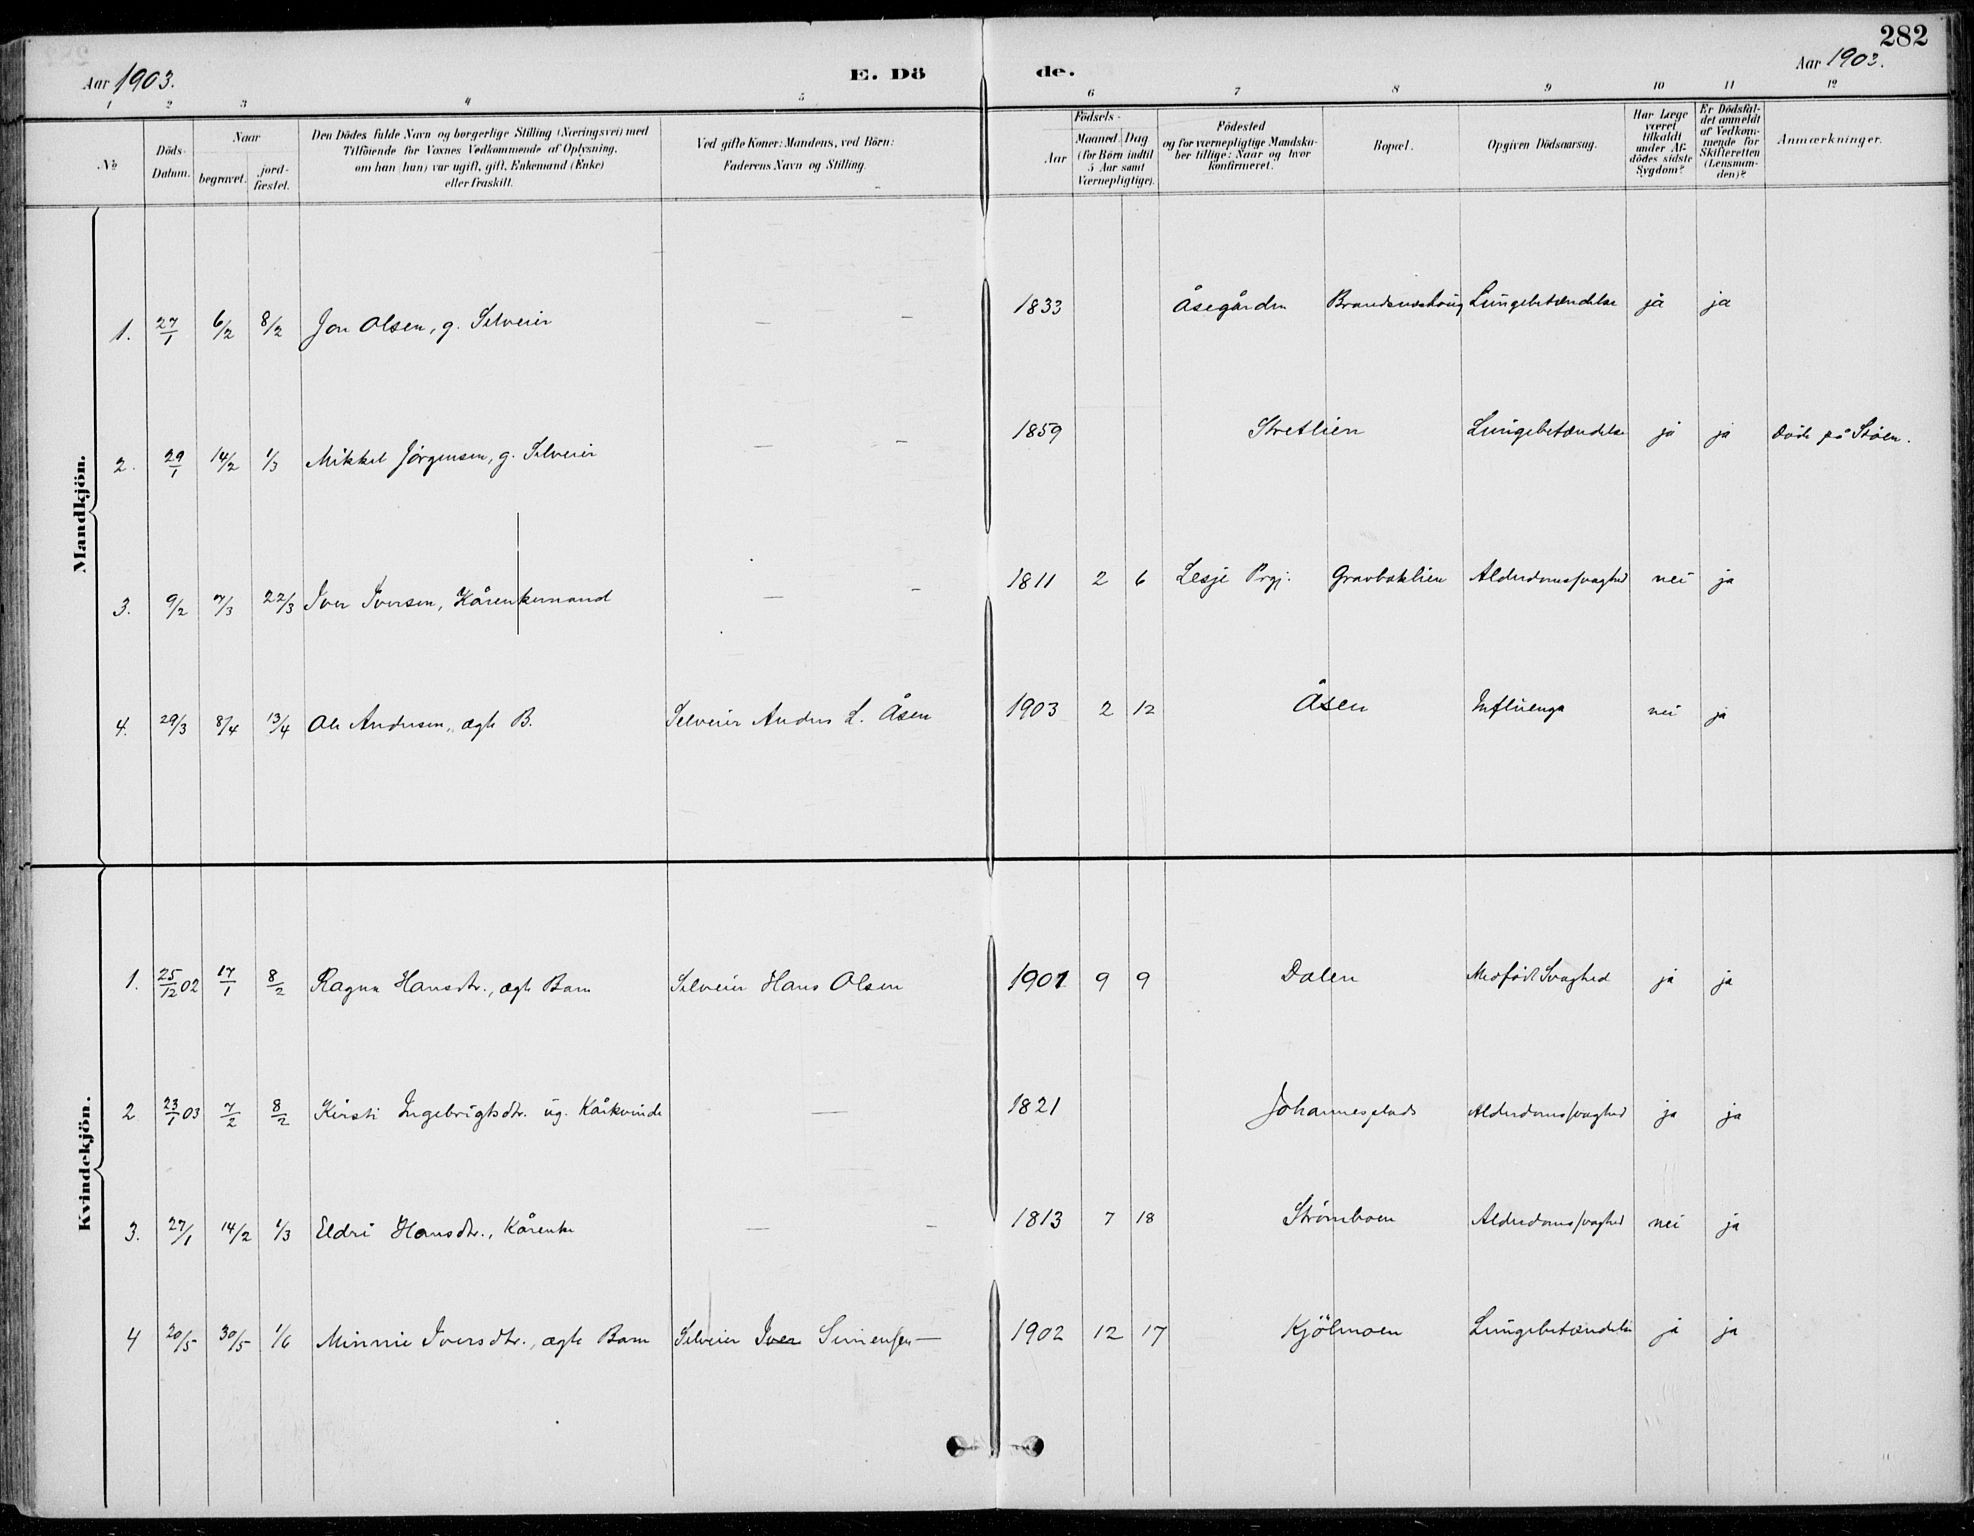 282
Aar 1903.
E. Dö de.
Aar 1903.
1 2 3 4 5 6 7 8 9 10 11 12
No
Döds-
Datum.
Naar
begravet.
jord-
fæstet.
Den Dödes fulde Navn og borgerlige Stilling (Næringsvei) med
Tilföiende for Voxnes Vedkommende af Oplysning,
om han (hun) var ugift, gift, Enkemand (Enke)
eller fraskilt.
Ved gifte Koner: Mandens, ved Börn:
Faderens Navn og Stilling.
Födsels-
Aar
Maaned. Dag
(for Börn indtil
5 Aar samt
Værnepligtige).
Födested
og for værnepligtige Mandska-
ber tillige: Naar og hvor
konfirmeret.
Bopæl.
Opgiven Dödsaarsag.
Har Læge
været
tilkaldt
under Af-
dödes sidste
Sygdom?
Er Dödsfal-
det anmeldt
af Vedkom-
mende for
Skifteretten
(Lensman-
den)?
Anmærkninger.
Mandkjön.
1. 27/1 6/2 8/2 Jon Olsen, g. Selveier — — 1833 Åsegården Lungebetændelse ja ja
2. 29/1 14/2 1/3 Mikkel Jörgensen, g. Selveier — — 1859 Stretlien Lungebetændelse ja ja Döde på Stöen.
3. 9/2 7/3 22/3 Iver Iversen, Kårenkemand — — 1811 2 6 Lesje Prgj. Gravbaklien Alderdomssvaghed nei ja
4. 29/3 8/4 13/4 Ole Andersen, ægte B. Selveier Anders L. Åsen 1903 2 12 Åsen Influenza nei ja
Kvindekjön.
1. 25/12 02 17/1 8/2 Ragna Hansdtr., ægte Barn Selveier Hans Olsen 1901 9 9 Dalen Medfödt Svaghed ja ja
2 23/1 03 7/2 8/2 Kirsti Ingebrigtsdtr. ug. Kårkvinde — 1821 Johannesplads Alderdomssvaghed ja ja
3. 27/1 14/2 1/3 Eldri Hansdtr., Kårenke — — 1813 7 18 Strömboen Alderdomssvaghed nei ja
4 20/5 30/5 1/6 Minnie Iversdtr., ægte Barn Selveier Iver Simensen — 1902 12 17 Kjölmoen Lungebetændelse ja ja